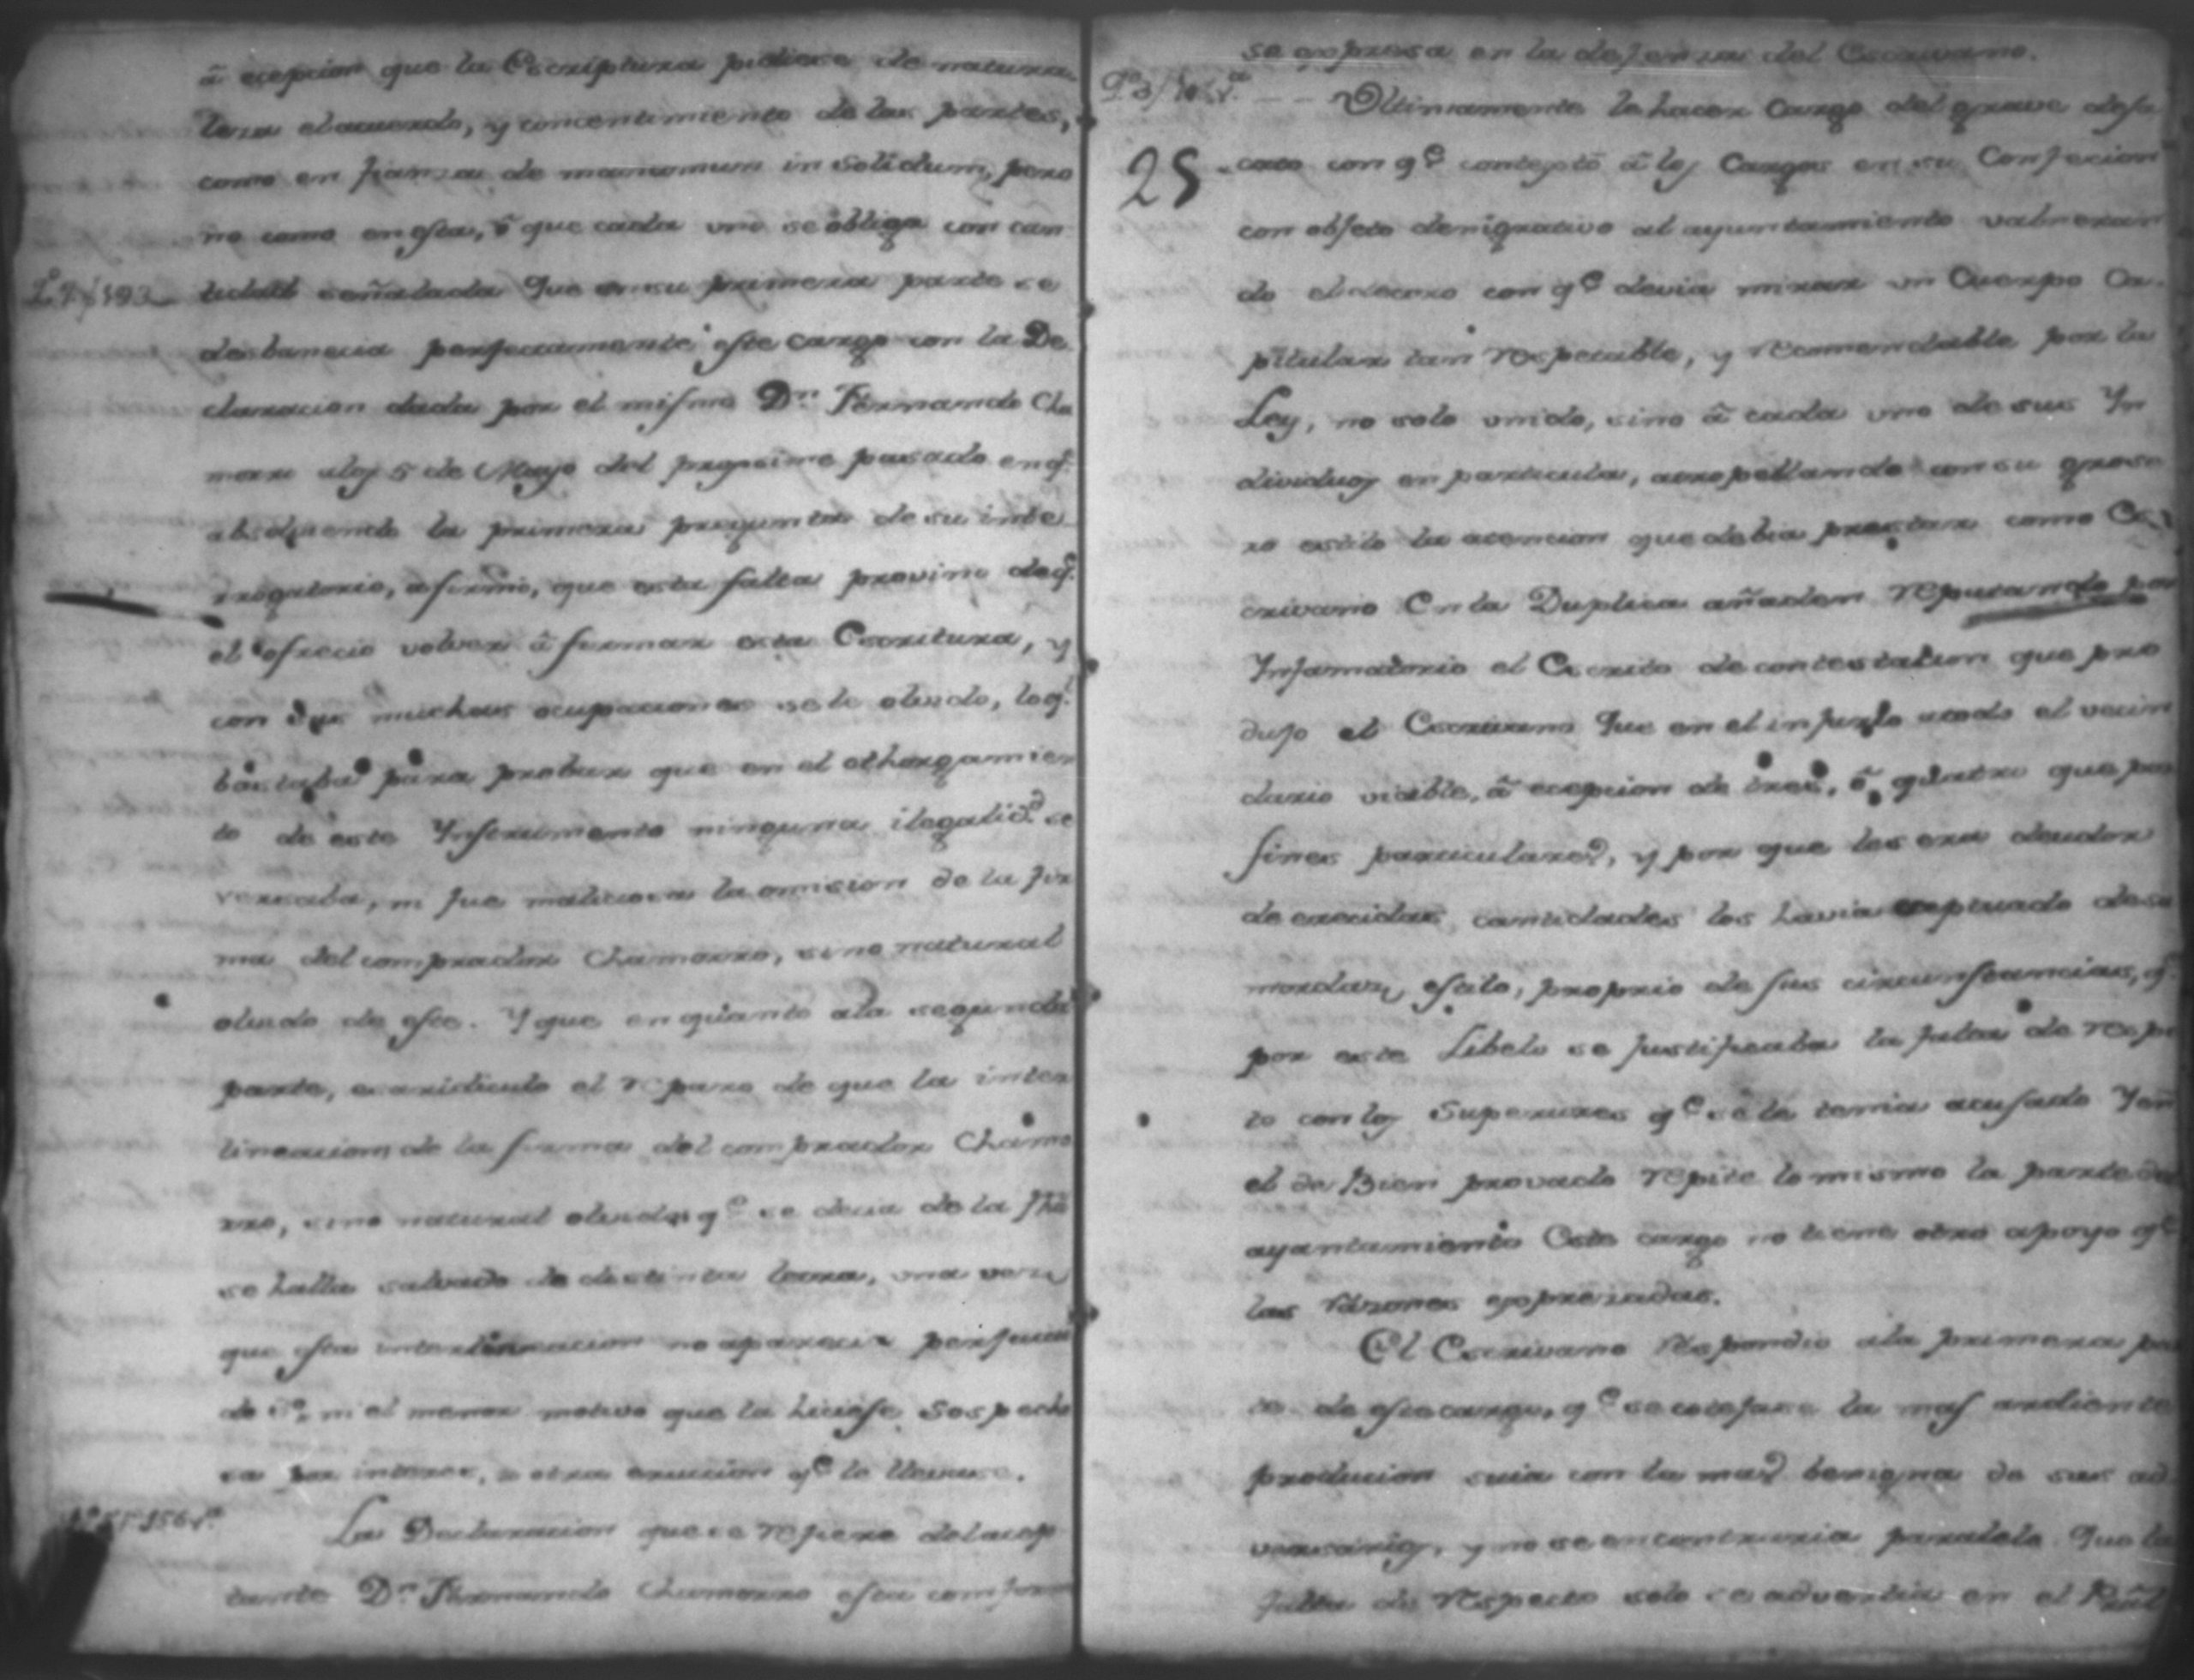 â ecepcion que la Escriptura pidiese de natura
leza el acuerdo, y concentimiento de las partes,
como en fianza de mancomun in solidum, pero
no como en esta, ô que cada uno se obliga con can
tidad señalada Que en su primera parte se
desbanecia perfectamente este cargo con la De
claracion dada por el mismo Dn. Fernando Cha
morro a los 5 de Mayo del proximo pasado en q.
absolviendo la primera pregunta de su inte
rrogatorio, afirmó, que esta falta provino de q.
el ofrecio volver â firmar esta Escritura, y
con sus muchas ocupaciones se le olvido, lo q.
bastaba para probar que en el othorgamien
to de este Ynstrumento ninguna ilegalid. se
versaba, ni fue maliciosa la omision de la fir
ma del comprador Chamorro, sino natural
olvido de este. Y que en quanto a la segunda
parte, era ridiculo el reparo de que la inter
lineacion de la firma del comprador Chamo
rro, sino natural olvido qe se decia de la fha
se halla salvado de distinta letra, una vez
que esta interlineacion no aparecia perjuici
de 3o. ni el menor motivo que la hiciese sospecho
sa por interes, u otra atencion qe le llevase.
La Declaracion que se refiere del acep
tante Dn. Fernando Chamorro esta conform
se expresa en la defensa del Escrivano.
25
Ultimamente le hacen Cargo del grave desa
cato con qe contextó â los Cargos en su Confecion
con objeto denigrativo al ayuntamiento vulneran
do el decoro con qe devia mirar un Cuerpo Ca
pitular tan respetable, y recomendable por la
Ley, no solo unido, sino â cada uno de sus Yn
dividuos en particular, atropellando con su grose
ro estilo la atencion que debia prestar como Es
crivano En la Duplica añaden reputando por
Ynfamatorio el Escrito de contestacion que pro
dujo el Escrivano Que en el injurio a todo el vecin
dario visible, â ecepcion de tres, ô quatro que por
fines particulares, y por que les era deudor
de crecidas cantidades los havia exeptuado de su
mordaz estilo, proprio de sus circunstancias, q.
por este Libelo se justificaba la falta de respe
to con los Superiores qe se le tenia acusado Y en
el de Bien provado repite lo mismo la parte del
ayuntamiento Este cargo no tiene otro apoyo qe
las razones expresadas.
El Escrivano respondio a la primera par
te de este cargo, qe se cotejase la mas ardiente
producion suia con la mas benigna de sus ad
versarios, y no se encontraria paralelo Que la
falta de respecto solo se advertia en el